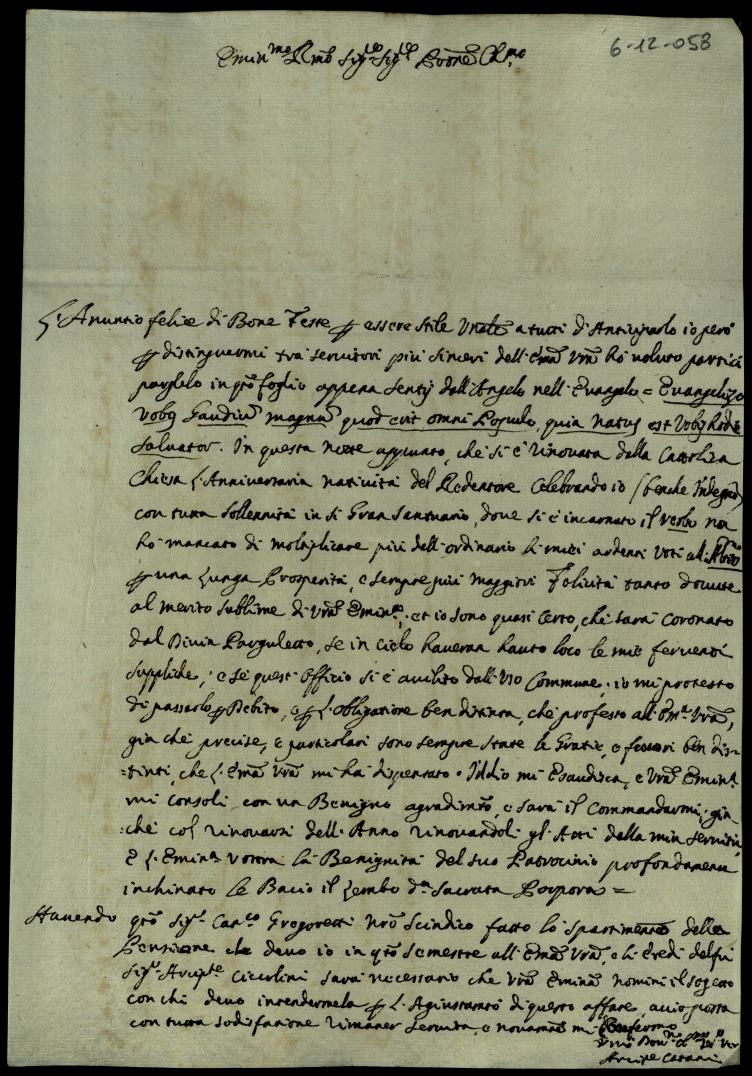 6-12-058
Emin.mo R.mo Sig.re Sig.re Pron.e Col.mo
L'Anuntio felice di Bone Feste p essere stile Vnale a tutti d'Anticiparlo io però
p distinguermi tra servitori piu sinceri dell'Em.a Vrã hò voluto partici
parglelo in qrõ foglio appena sentij dall'Angelo nell'Evangelo = Evangelizo
Vobis Gaudiũ magnũ quod erit omni Populo, quia natus est Vobis hodie
Salvator. In questa notte appunto, che si è rinovata dalla Cattolica
Chiesa l'Anniversaria natività del Redentore celebrando io (benche Indegno)
con tutta sollennità in si Gran Santuario, dove si è incarnato il verbo non
hò mancato di moltiplicare più dell'ordinario li miei ardenti voti all'
p una lunga Prosperità, e sempre più maggiori Felicità tanto dovute
al merito sublime di Vrã Emin.a, et io sono quasi certo, che sarà coronato
dal Divin Pargoletto, se in cielo haveran hauto loco le mie ferventi
suppliche; e se quest'officio si è avilito dall'Vso Commune, io mi protesto
di passarlo p Debito, e p l'obligatione ben distinta, che professo all'Em.a Vrã,
gia che precise, e particolari sono sempre state le Gratie, e favori ben dis=
=tinti, che l'Emã Vrã mi hà dispensato. Iddio mi Esaudisca, e Vrã Emin.a
mi consoli con un Benigno agradim.to, e sarà il Commandarmi, gia
che col rinovarsi dell'Anno rinovandoli gl'Atti della mia servitù,
E l'Emin.a Vostra la Benignità del suo Patrocinio profondamente
inchinato le Bacio il Lembo d.a Sacrata Porpora =
Havendo qrõ Sig.r Can.co Gregoretti nrõ Scindico fatto lo spartimento della
Pensione che devo io in qrõ semestre all'Emã Vrã, e li Eredi del fu
Sig.r Arcip.te Ciccolini sarà necessario che Vrã Eminã nomini il sogetto
con chi devo intendermela p l'Agiustamtõ di questo affare, accio possa
con tutta sodisfatione rimaner servita, e novamtẽ mi Confermo
Arcip.e Catani